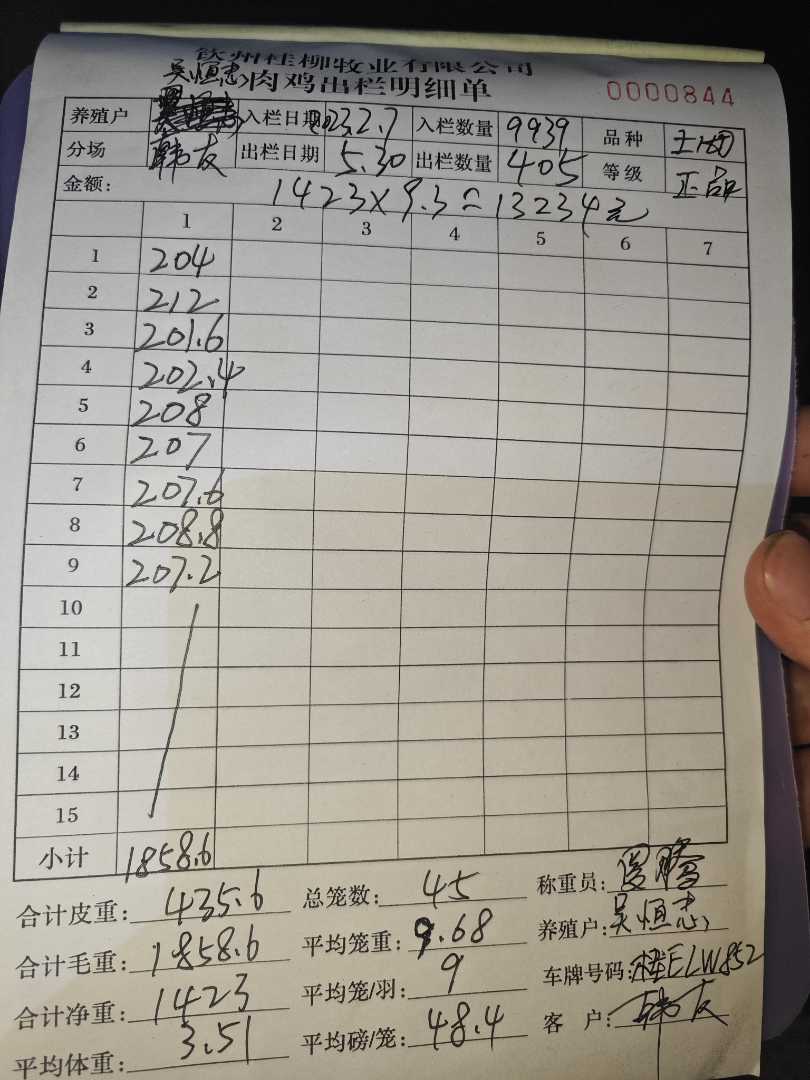 钦州桂柳牧业有限公司
吴恒志 肉鸡出栏明细单 0000844
养殖户 入栏日期 2023.2.7 入栏数量 9939 品种
分场 韩友 出栏日期 5.30 出栏数量 405 等级 正品
金额: 1423×9.3=13234元
1 2 3 4 5 6 7
1 204
2 212
3 201.6
4 202.4
5 208
6 207
7 207.6
8 208.8
9 207.2
10
11
12
13
14
15
小计 1858.6
合计皮重: 435.6 总笼数: 45 称重员:
合计毛重: 1858.6 平均笼重: 9.68 养殖户: 吴恒志
合计净重: 1423 平均笼/羽: 9 车牌号码: 桂ELW852
平均体重: 3.51 平均磅/笼: 48.4 客户: 韩友